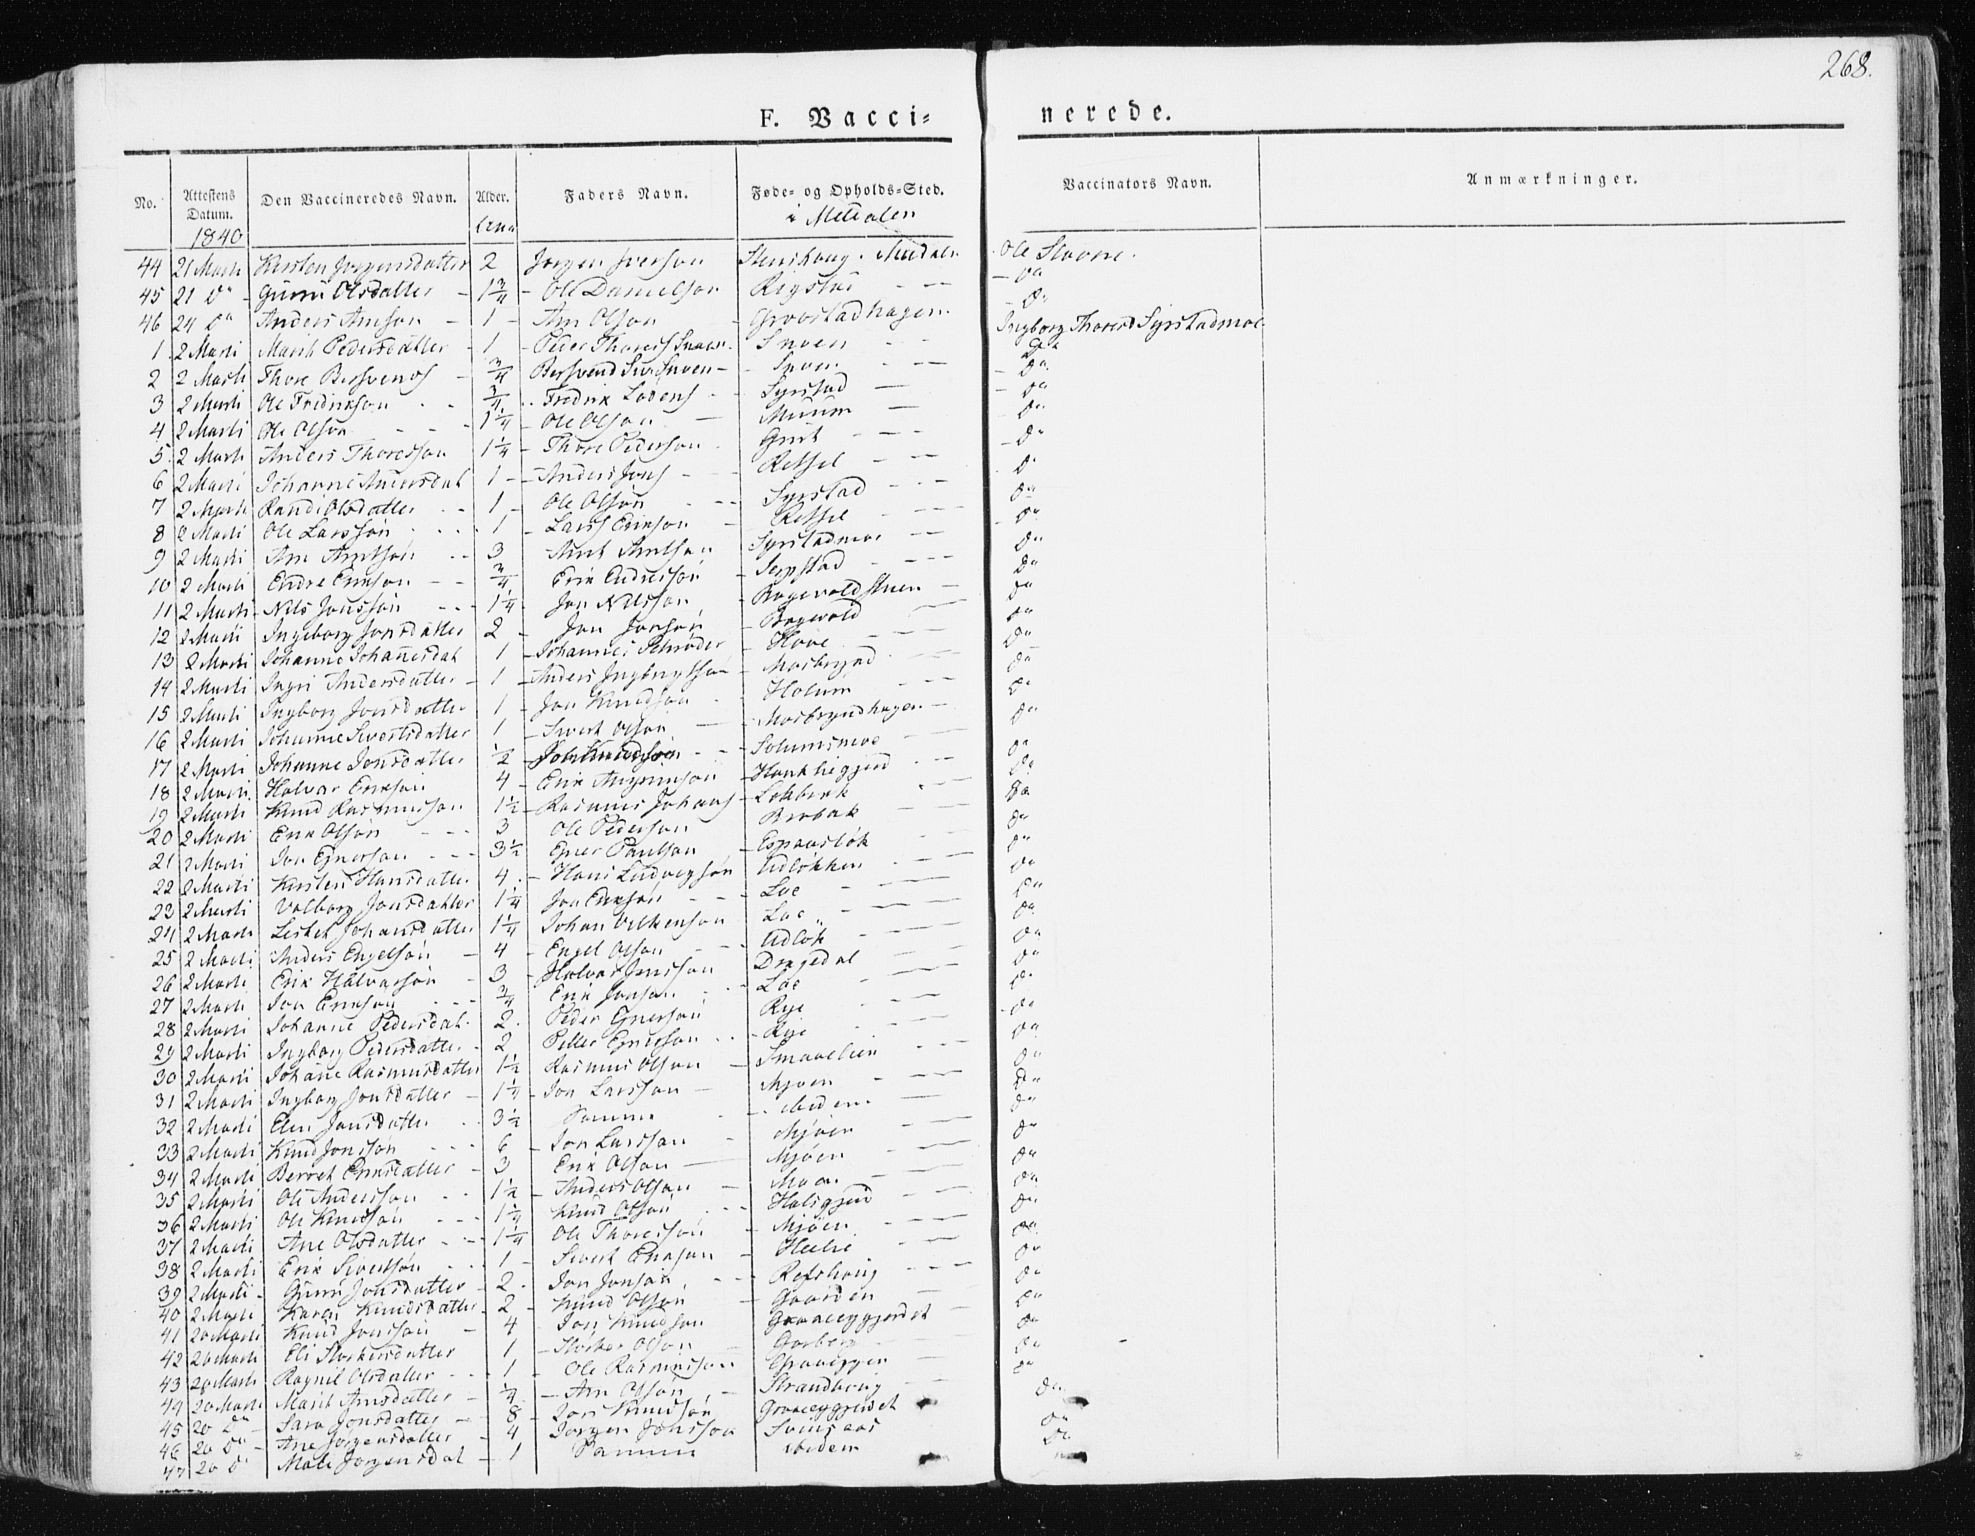 268.
F. Vacci= nerede.
No. Attestens Datum. Den Vaccineredes Navn. Alder. Faders Navn. Føde- og Opholds-Sted. Vaccinators Navn. Anmærkninger.
1840 i Meldalen
44 21 Marti Kirsten Jørgensdatter 2 Jørgen Iverson Ole Stavne.
45 21 do Gunni Olsdatter 1 3/4 Ole Danielson Rigstad do
46 24 do Anders Arnson 1 Arn Olson Grovstadhagen do
1 2 Marti Marit Pedersdatter 1 Peder Thores Snoen Snoen Ingborg Thoresd Syrstadmoe
2 2 Marti Thore Bersvends 3/4 Bersvend Siv Snoen Snoen do
3 2 Marti Ole Fredrikson 3/4 Fredrik Lodens Syrstad do
4 2 Marti Ole Olson 1 1/4 Ole Olson Muum do
5 2 Marti Anders Thoresson 1 1/4 Thore Pederson Grut do
6 2 Marti Johanne Andersdat 1 Anders Jons Retsel do
7 2 Marti Randi Olsdatter 1 Ole Olson Syrstad do
8 2 Marti Ole Larssøn 1 Lars Erikson Retsel do
9 2 Marti Arn Arntson 3 Arnt Arntson Syrstadmoe do
10 2 Marti Endre Erikson 3/4 Erik Endresson do
11 2 Marti Nils Jonsson 1 1/4 Jon Nilsson do
12 2 Marti Ingeborg Jonsdatter 2 Jon Jonson do
13 2 Marti Johanne Johannesdat 1 Johannes Schrøder Hove do
14 2 Marti Ingri Andersdatter 1 Anders Ingbrigtson Mosbrynd do
15 2 Marti Ingborg Jonsdatter 1 Jon Knudson Holum do
16 2 Marti Johanne Sivertsdatter 1 Sivert Olson Mosbryndhagen do
17 2 Marti Johanne Jonsdatter 1/2 Jon Knudson Solumsmoe do
18 2 Marti Halvor Erikson 4 Erik do
19 2 Marti Knud Rasmusson 1 1/2 Rasmus Johans do
20 2 Marti Erik Olson 3 Ole Pederson do
21 2 Marti Jon Egnerson 3 1/2 Egner Paulson Espaasløk do
22 2 Marti Kirsten Hansdatter 4 Hans Ludvigson Udløkken do
23 2 Marti Volborg Jonsdatter 1 1/4 Jon Erikson Loe do
24 2 Marti Lisbet Johansdatter 1 1/4 Johan Vilkenson Loe do
25 2 Marti Anders Engelson 4 Engel Olson Udløk do
26 2 Marti Erik Halvorson 3 Halvor Jonsson Dragedal do
27 2 Marti Jon Erikson 3/4 Erik Jonson Loe do
28 2 Marti Johanne Pedersdat. 2 Peder Egnerson Rye do
29 2 Marti Ingborg Pedersdatter 2 Peder Egnerson Rye do
30 2 Marti Johane Rasmusdatter 1 1/2 Rasmus Olson Smaaelien do
31 2 Marti Ingborg Jonsdatter 1 1/4 Jon Larsson Mjøen do
32 2 Marti Elen Jonsdatter 3 1/2 Samme ibidem do
33 2 Marti Knud Jonsson 6 Jon Larsson Mjøen do
34 2 Marti Beroet Eriksdatter 3 Erik Olson Mjøen do
35 2 Marti Ole Anderson 1 1/2 Anders Olson Moen do
36 2 Marti Ole Knudson 1 1/4 Knud Olson Halsgjerd do
37 2 Marti Ane Olsdatter 1 1/4 Ole Thoresson Mjøen do
38 2 Marti Erik Sivertson 1 Sivert Erikson do
39 2 Marti Gunni Jonsdatter 2 Jon Jonson Refshoug do
40 2 Marti Karen Knudsdatter 2 Knud Olson Gaarden do
41 20 Marti Knud Jonsson 4 Jon Knudson do
42 20 Marti Eli Størkersdatter 1 Størker Olson do
43 20 Marti Ragnil Olsdatter 1 Ole Rasmusson do
44 20 Marti Marit Arnsdatter Arn Olson Strandhoug do
45 20 do Sara Jonsdatter 8 Jon Knudson do
46 20 do Ane Jørgensdatter 4 Jørgen Jonsson Sviisaas do
47 20 do Mali Jørgensdat 1 Samme ibidem